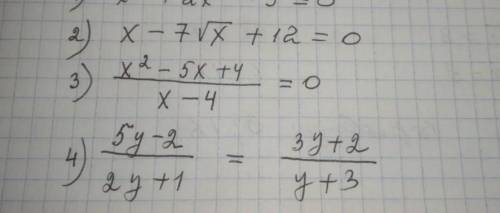 2) x - 7√x + 12 = 0
3) (x² - 5x + 4)/(x - 4) = 0
4) (5y - 2)/(2y + 1) = (3y + 2)/(y + 3)